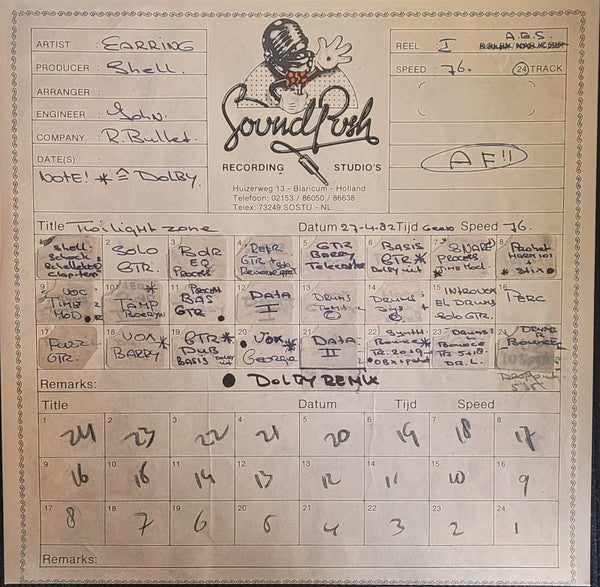 ARTIST : EARRING
PRODUCER : Shell.
ARRANGER :
ENGINEER : John.
COMPANY : R. Bullet.
DATE(S)
NOTE! * ≙ DOLBY.
Sound Push
RECORDING STUDIO'S
Huizerweg 13 - Blaricum - Holland
Telefoon: 02153 / 86050 / 86638
Telex: 73249 SOSTU - NL
REEL : I A.G.S.
SPEED : 76. 24 TRACK
AF!!
Title Twilight zone Datum 27-4.82 Tijd Speed 76.
1 Shell.
2 SOLO GTR.
3 BDR EQ PROCES
4 GTR +
5 GTR BARRY Telecaster
6 BASIS GTR.*
7 SNARE PROCES TIME MOD.
8 Prophet HARM 101
9 VOC TIME MOD
10 TAMP
11 PROCES BAS GTR
12 DATA I
13 DRUMS
14 DRUMS
15 INTROVOX EL DRUMS SOLO GTR.
16 PERC
17 Fuzz GTR.
18 VOX* BARRY
19 GTR* DUB BASIS
20 VOX* George
21 DATA II
22 SYNTH. Bounce* TR. 20+9
23 DRUMS L BOUNCE TR 5+18 DR. L.
24 DRUMS R BOUNCE
Remarks: ● DOLBY REMIX
Title Datum Tijd Speed
1 2 3 4 5 6 7 8
24 23 22 21 20 19 18 17
9 10 11 12 13 14 15 16
16 16 14 13 12 11 10 9
17 18 19 20 21 22 23 24
8 7 6 6 4 3 2 1
Remarks: